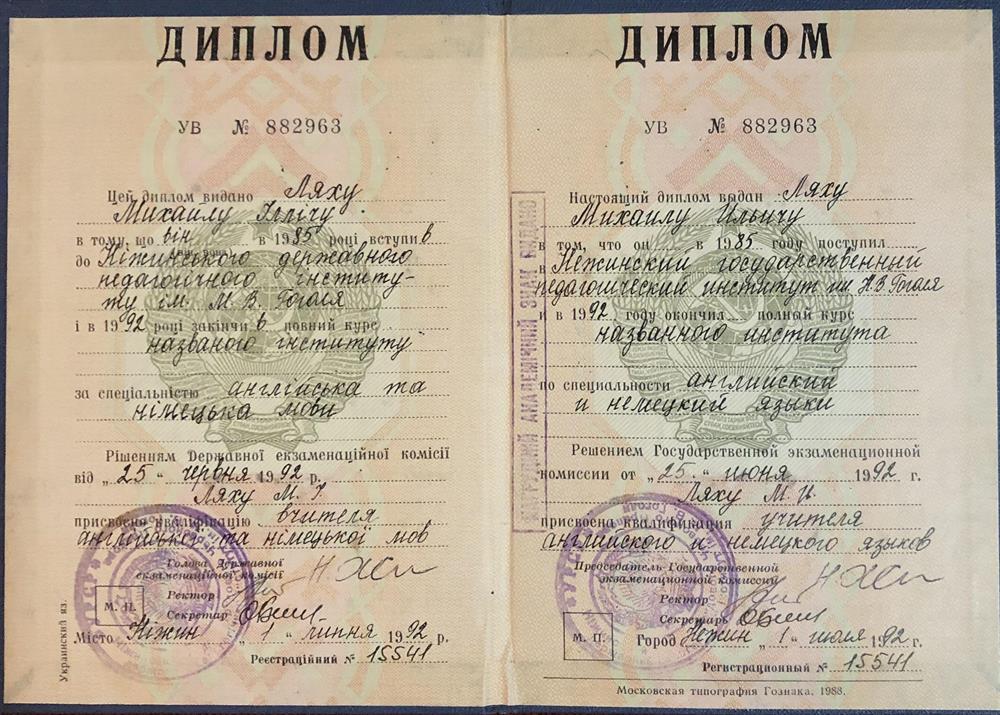 ДИПЛОМ
УВ № 882963
Цей диплом видано Ляху
Михайлу Іллічу
в тому, що він в 1985 році вступив
до Ніжинського державного
педагогічного інститу-
ту ім. М. В. Гоголя
і в 1992 році закінчив повний курс
названого інституту
за спеціальністю англійська та
німецька мови
Рішенням Державної екзаменаційної комісії
від „25" червня 1992 р.
Ляху М. І.
присвоєно кваліфікацію вчителя
англійської та німецької мов
Голова Державної
екзаменаційної комісії
Ректор
М. П.
Секретар
Місто Ніжин „1" липня 1992 р.
Реєстраційний № 15541
Украинский яз.
ДИПЛОМ
УВ № 882963
Настоящий диплом выдан Ляху
Михаилу Ильичу
в том, что он в 1985 году поступил
в Нежинский государственный
педагогический институт им Н.В. Гоголя
и в 1992 году окончил полный курс
названного института
по специальности английский
и немецкий языки
Решением Государственной экзаменационной
комиссии от „25" июня 1992 г.
Ляху М. И.
присвоена квалификация учителя
английского и немецкого языков
Председатель Государственной
экзаменационной комиссии
Ректор
Секретарь
М. П.
Город Нежин „1" июля 1992 г.
Регистрационный № 15541
Московская типография Гознака, 1988.
НАГРУДНИЙ АКАДЕМІЧНИЙ ЗНАК ВИДАНО